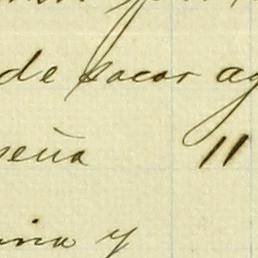 de sacar ag
seña 11
ina y